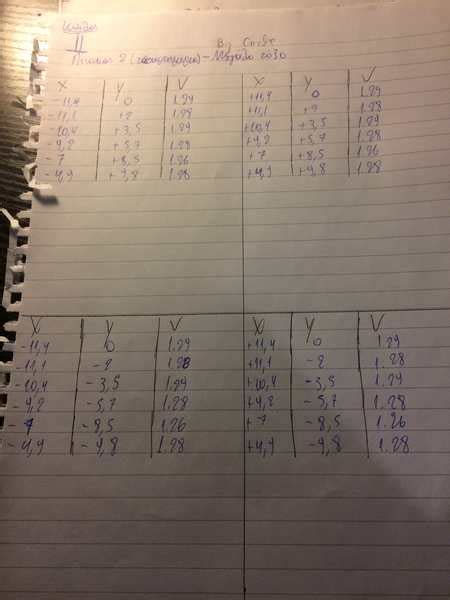 II
X y V X y V
-11,4 0 1.29 +11,4 0 1.29
-11,1 +2 1.28 +11,1 +2 1.28
-10,4 +3,5 1.29 +10,4 +3,5 1.29
-9,2 +5,7 1.28 +9,2 +5,7 1.28
-7 +8,5 1.26 +7 +8,5 1.26
-4,9 +9,8 1.28 +4,9 +9,8 1.28
X y V X y V
-11,4 0 1.29 +11,4 0 1.29
-11,1 -2 1.28 +11,1 -2 1.28
-10,4 -3,5 1.29 +10,4 -3,5 1.29
-9,2 -5,7 1.28 +9,2 -5,7 1.28
-7 -8,5 1.26 +7 -8,5 1.26
-4,9 -9,8 1.28 +4,9 -9,8 1.28